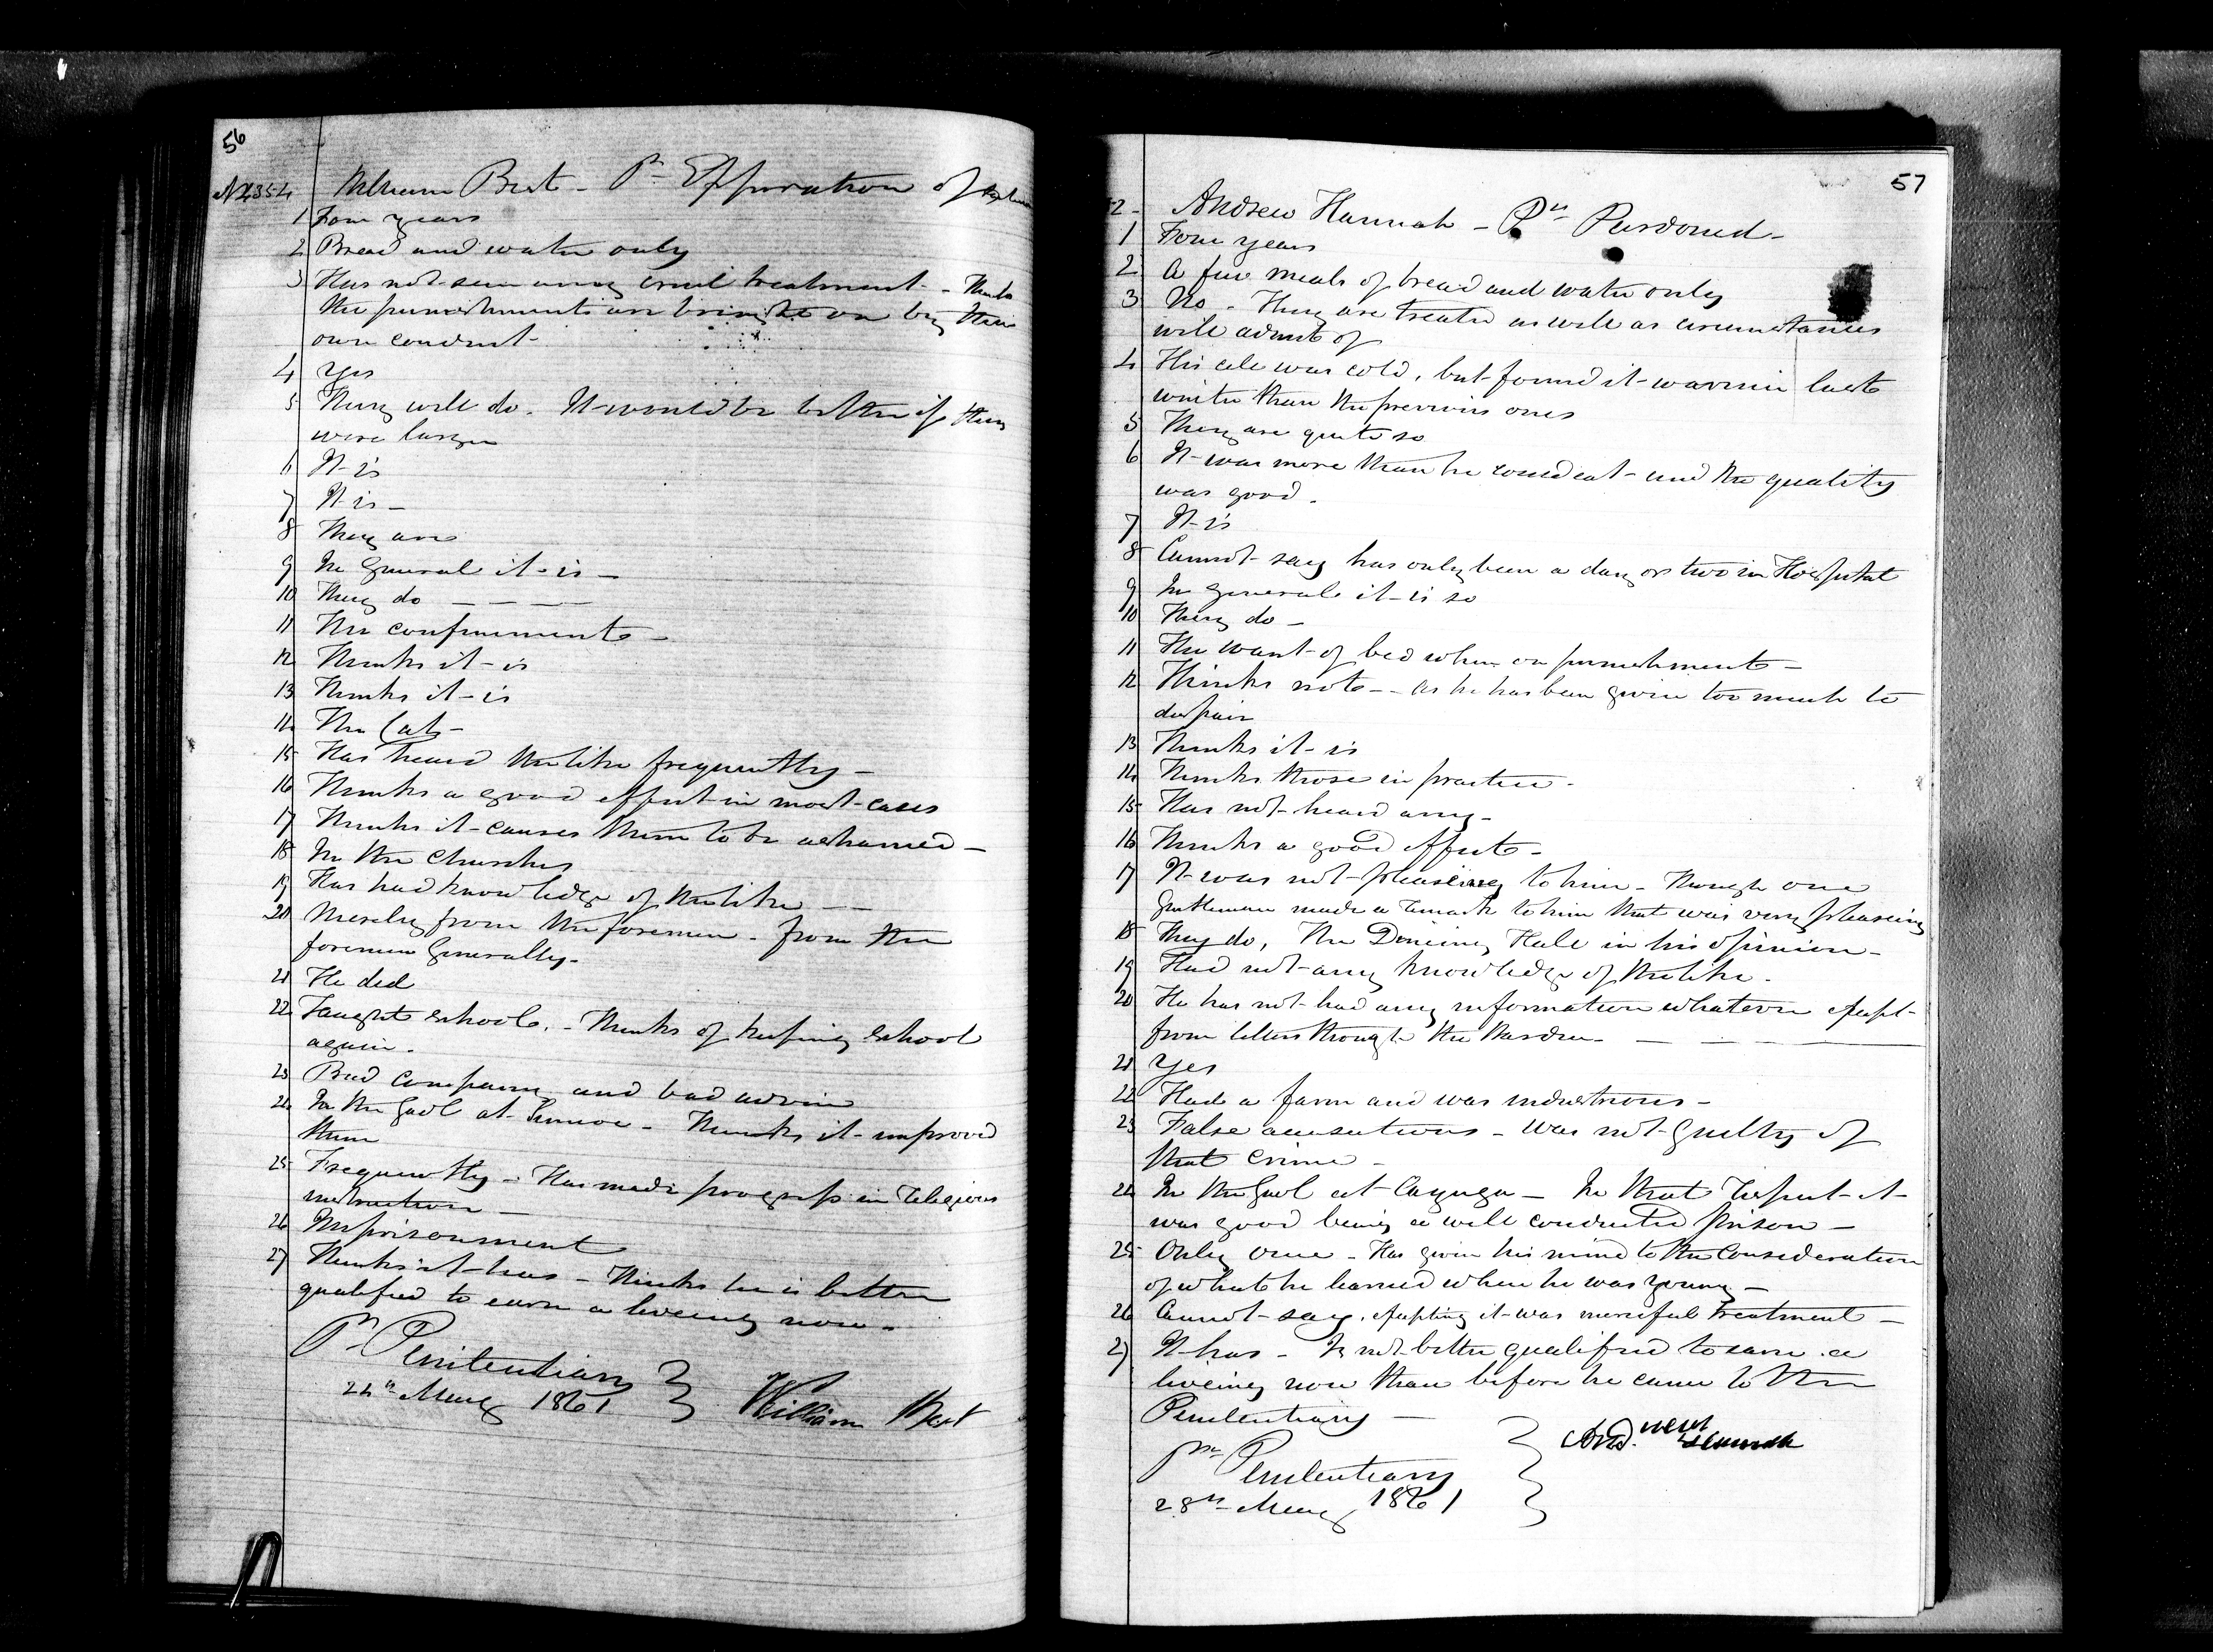 56
No 4354 William Burt - Pr Expiration of
1 Four years
2 Bread and water only
3 Has not seen any cruel treatment - Thinks
the punishments are brought on by their
own conduct -
4 Yes
5 They will do. It would be better if they
were larger
6 It is
7 It is -
8 They are
9 In General it is -
10 They do - - - -
11 The confinement -
12 Thinks it is
13 Thinks it is
14 The Cats -
15 Has heard the like frequently -
16 Thinks a good effect in most cases
17 Thinks it causes them to be ashamed -
18 In the Churches
19 Has had knowledge of the like - -
20 Merely from the foremen - from the
foremen Generally -
21 He did
22 Taught School. - Thinks of keeping School
again.
23 Bad Company and bad advice
24 In the Gaol at Simcoe - Thinks it improved
them
25 Frequently - Has made progress in Religious
instruction -
26 Imprisonment
27 Thinks it has - Thinks he is better
qualified to earn a liveing now -
Pn Penitentiary
24th May 1861
William Burt
57
2 - Andrew Hannah - Pn Pardoned -
1 Four years
2 A few meals of bread and water only
3 No - They are treated as well as circumstances
will admit of
4 His cell was cold, but found it warmer last
winter than the previous ones
5 They are quite so
6 It was more than he could eat - and the quality
was good.
7 It is
8 Cannot say has only been a day or two in Hospital
9 In general it is so
10 They do -
11 The want of bed when on punishment -
12 Thinks not - - as he has been given too much to
despair
13 Thinks it is
14 Thinks those in practice -
15 Has not heard any -
16 Thinks a good effect -
17 It was not pleaseing to him - Though one
Gentleman made a remark to him that was very pleaseing
18 They do, The Dineing Hall in his opinion -
19 Had not any knowledge of the like -
20 He has not had any information whatever except
from letters through the Warden - - - -
21 Yes
22 Had a farm and was industrious -
23 False accusations - Was not Guilty of
that crime -
24 In the Gaol at Cayuga - In that respect it
was good being a well conducted prison -
25 Only once - Has given his mind to the Consideration
of what he learned when he was young -
26 Cannot say, excepting it was merciful treatment -
27 It has - Is not better qualified to earn a
liveing now than before he came to the
Penitentiary -
Pn Penitentiary
28th May 1861
Andrew Hannah